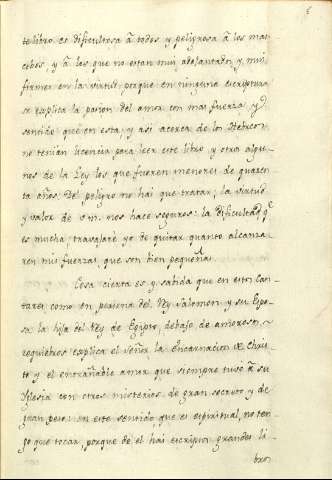 te libro es dificultosa â todos y peligrosa â los man-
cebos, y â los que no estan muy adelantados y mui
firmes en la virtud; porque en ninguna escriptura
se explica la pasion del amor con mas fuerza y
sentido que en esta, y asi acerca de los Hebreos
no tenian licencia para leer este libro y otros algu-
nos de la Ley los que fuesen menores de quaren-
ta años. Del peligro no hai que tratar, la virtud
y valor de vm. nos hace seguros: la dificultad qe
es mucha, trabajaré yo de quitar quanto alcanza-
ren mis fuerzas que son bien pequeñas.
Cosa cierta es y sabida que en estos Can-
tares como en persona del Rey Salomon y su Espo-
sa la hija del Rey de Egipto, debajo de amorosos
requiebros explica el Señor la Encarnacion de Chris-
to y el entrañable amor que siempre tubo â su
Yglesia con otros misterios de gran secreto y de
gran peso. en este sentido que es espiritual, no ten-
go que tocar, porque de el hai escriptos grandes li-
bros